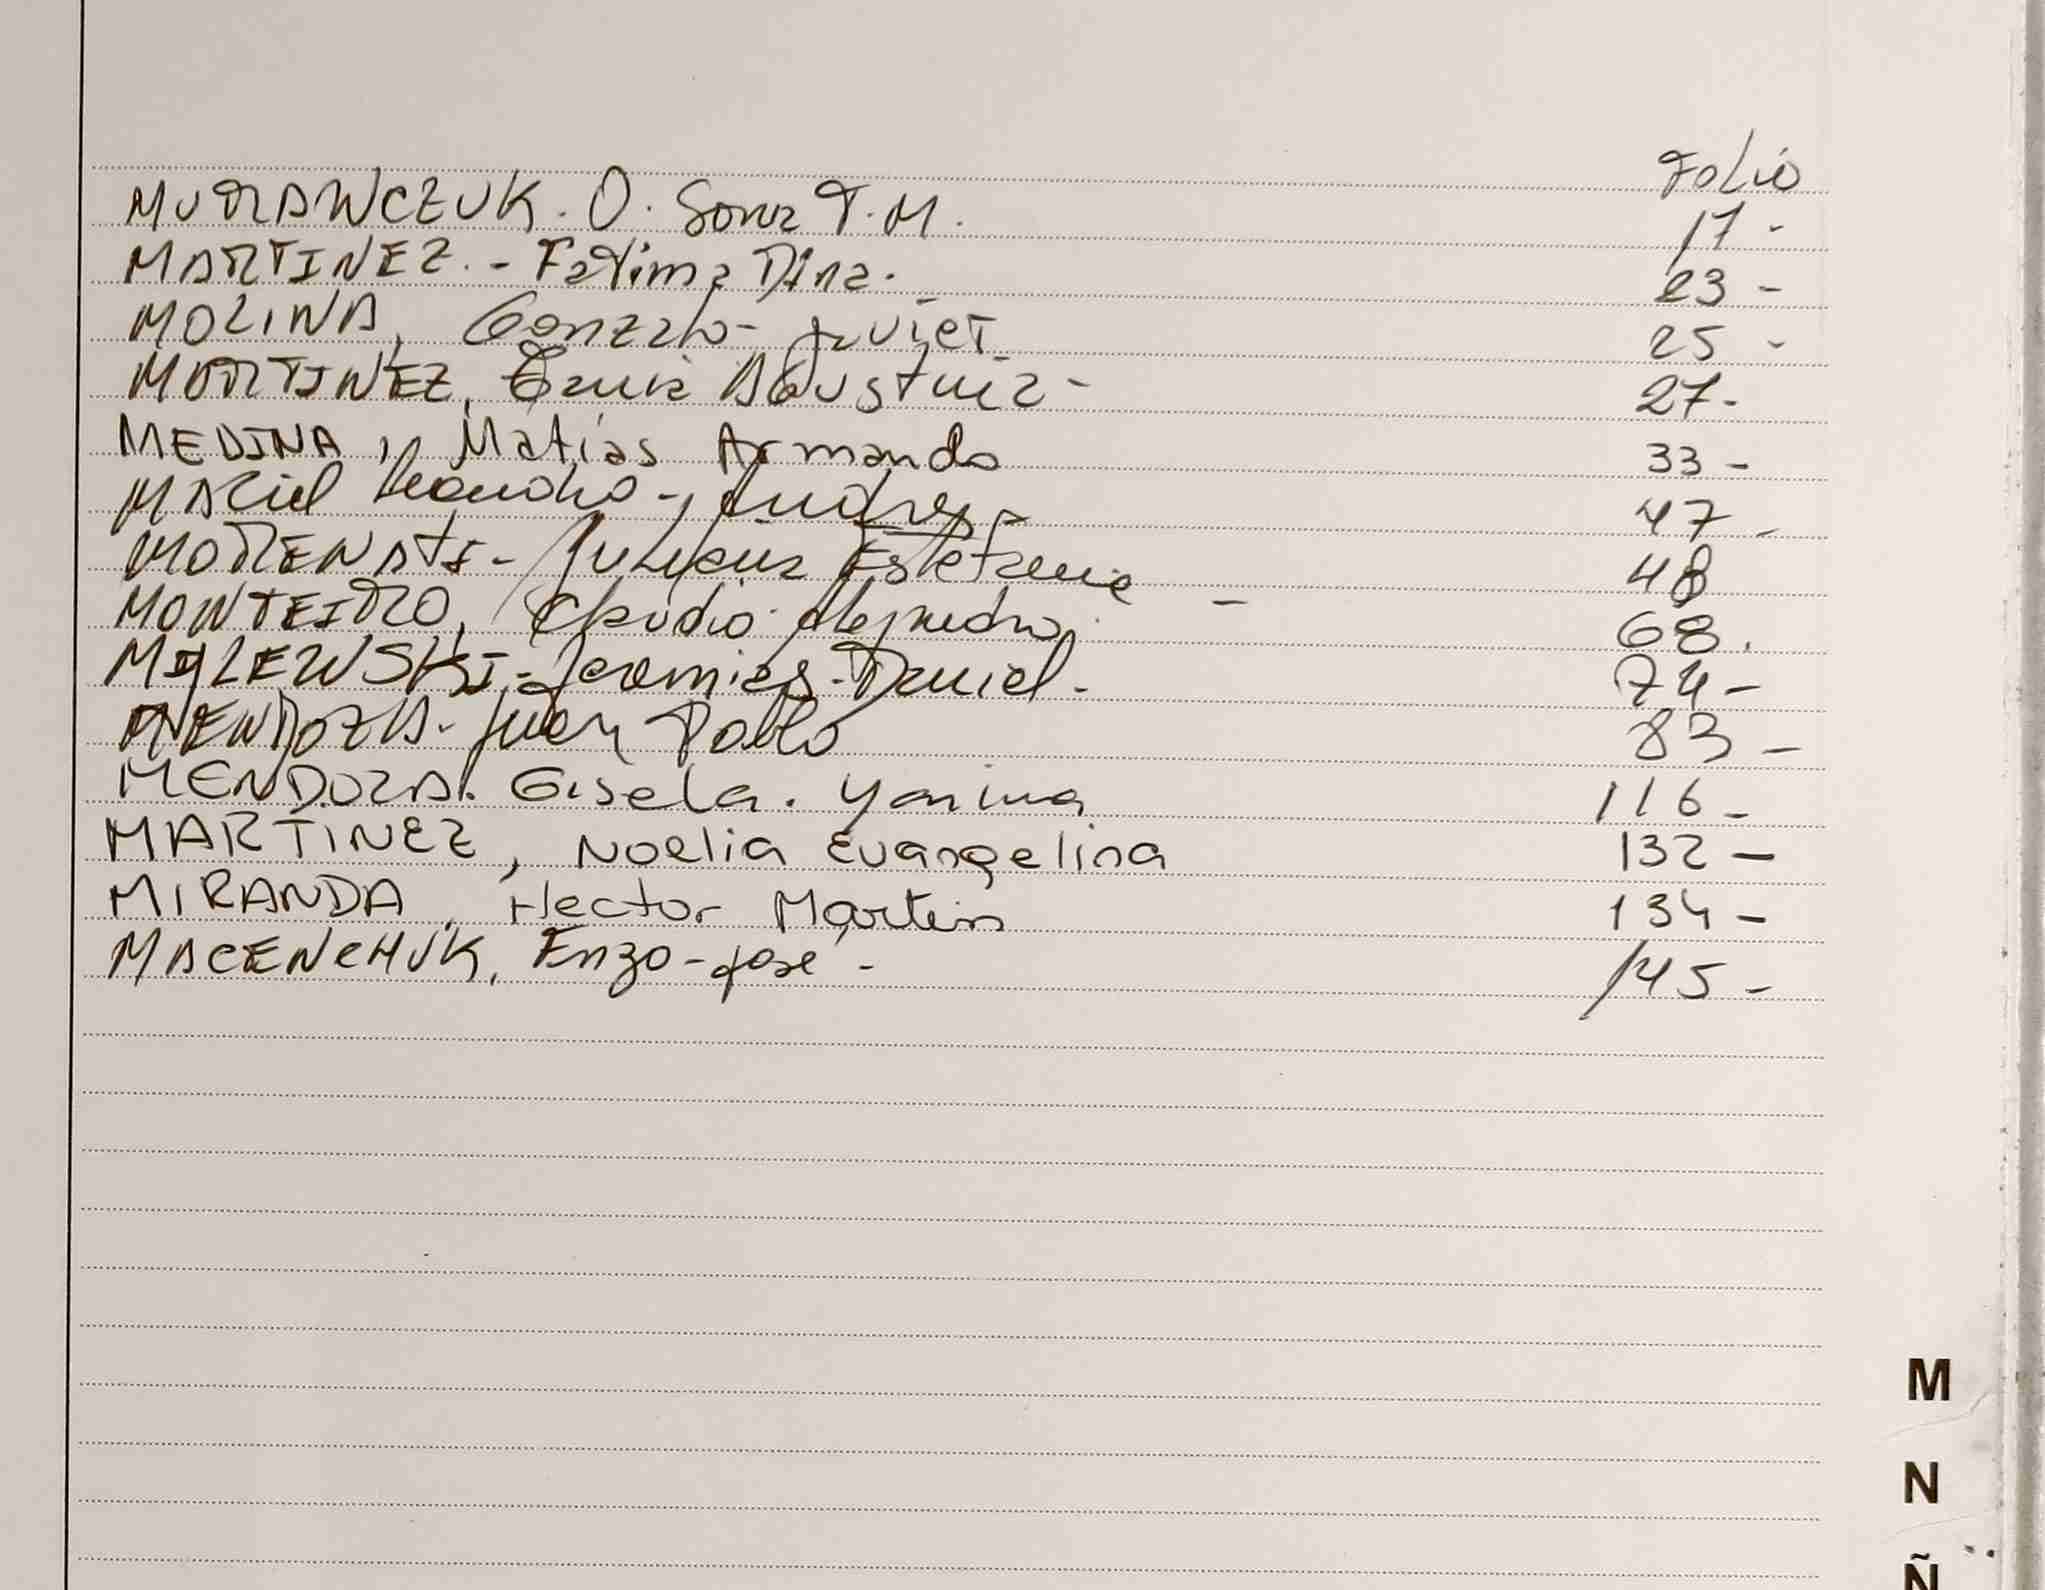 Folio
MURAWCZUK. O. Sonia T. M. 17 -
MARTINEZ. - Fatima Dina. 23 -
MOLINA, Gonzalo - Javier 25 -
MARTINEZ, Tania Agustina - 27 -
MEDINA, Matias Armando 33 -
MACIEL Leandro - Andres - 47 -
MORENATI - Estefania - 48
MONTEIRO, Claudio Alejandro. 68.
MILEWSKI - Jeremias - Daniel - 74 -
MENDOZA - Juan Pablo 83 -
MENDOZA. Gisela. Yanina 116 -
MARTINEZ, Noelia Evangelina 132 -
MIRANDA, Hector Martin 134 -
MACENCHUK, Enzo - Jose - 145 -
M
N
Ñ